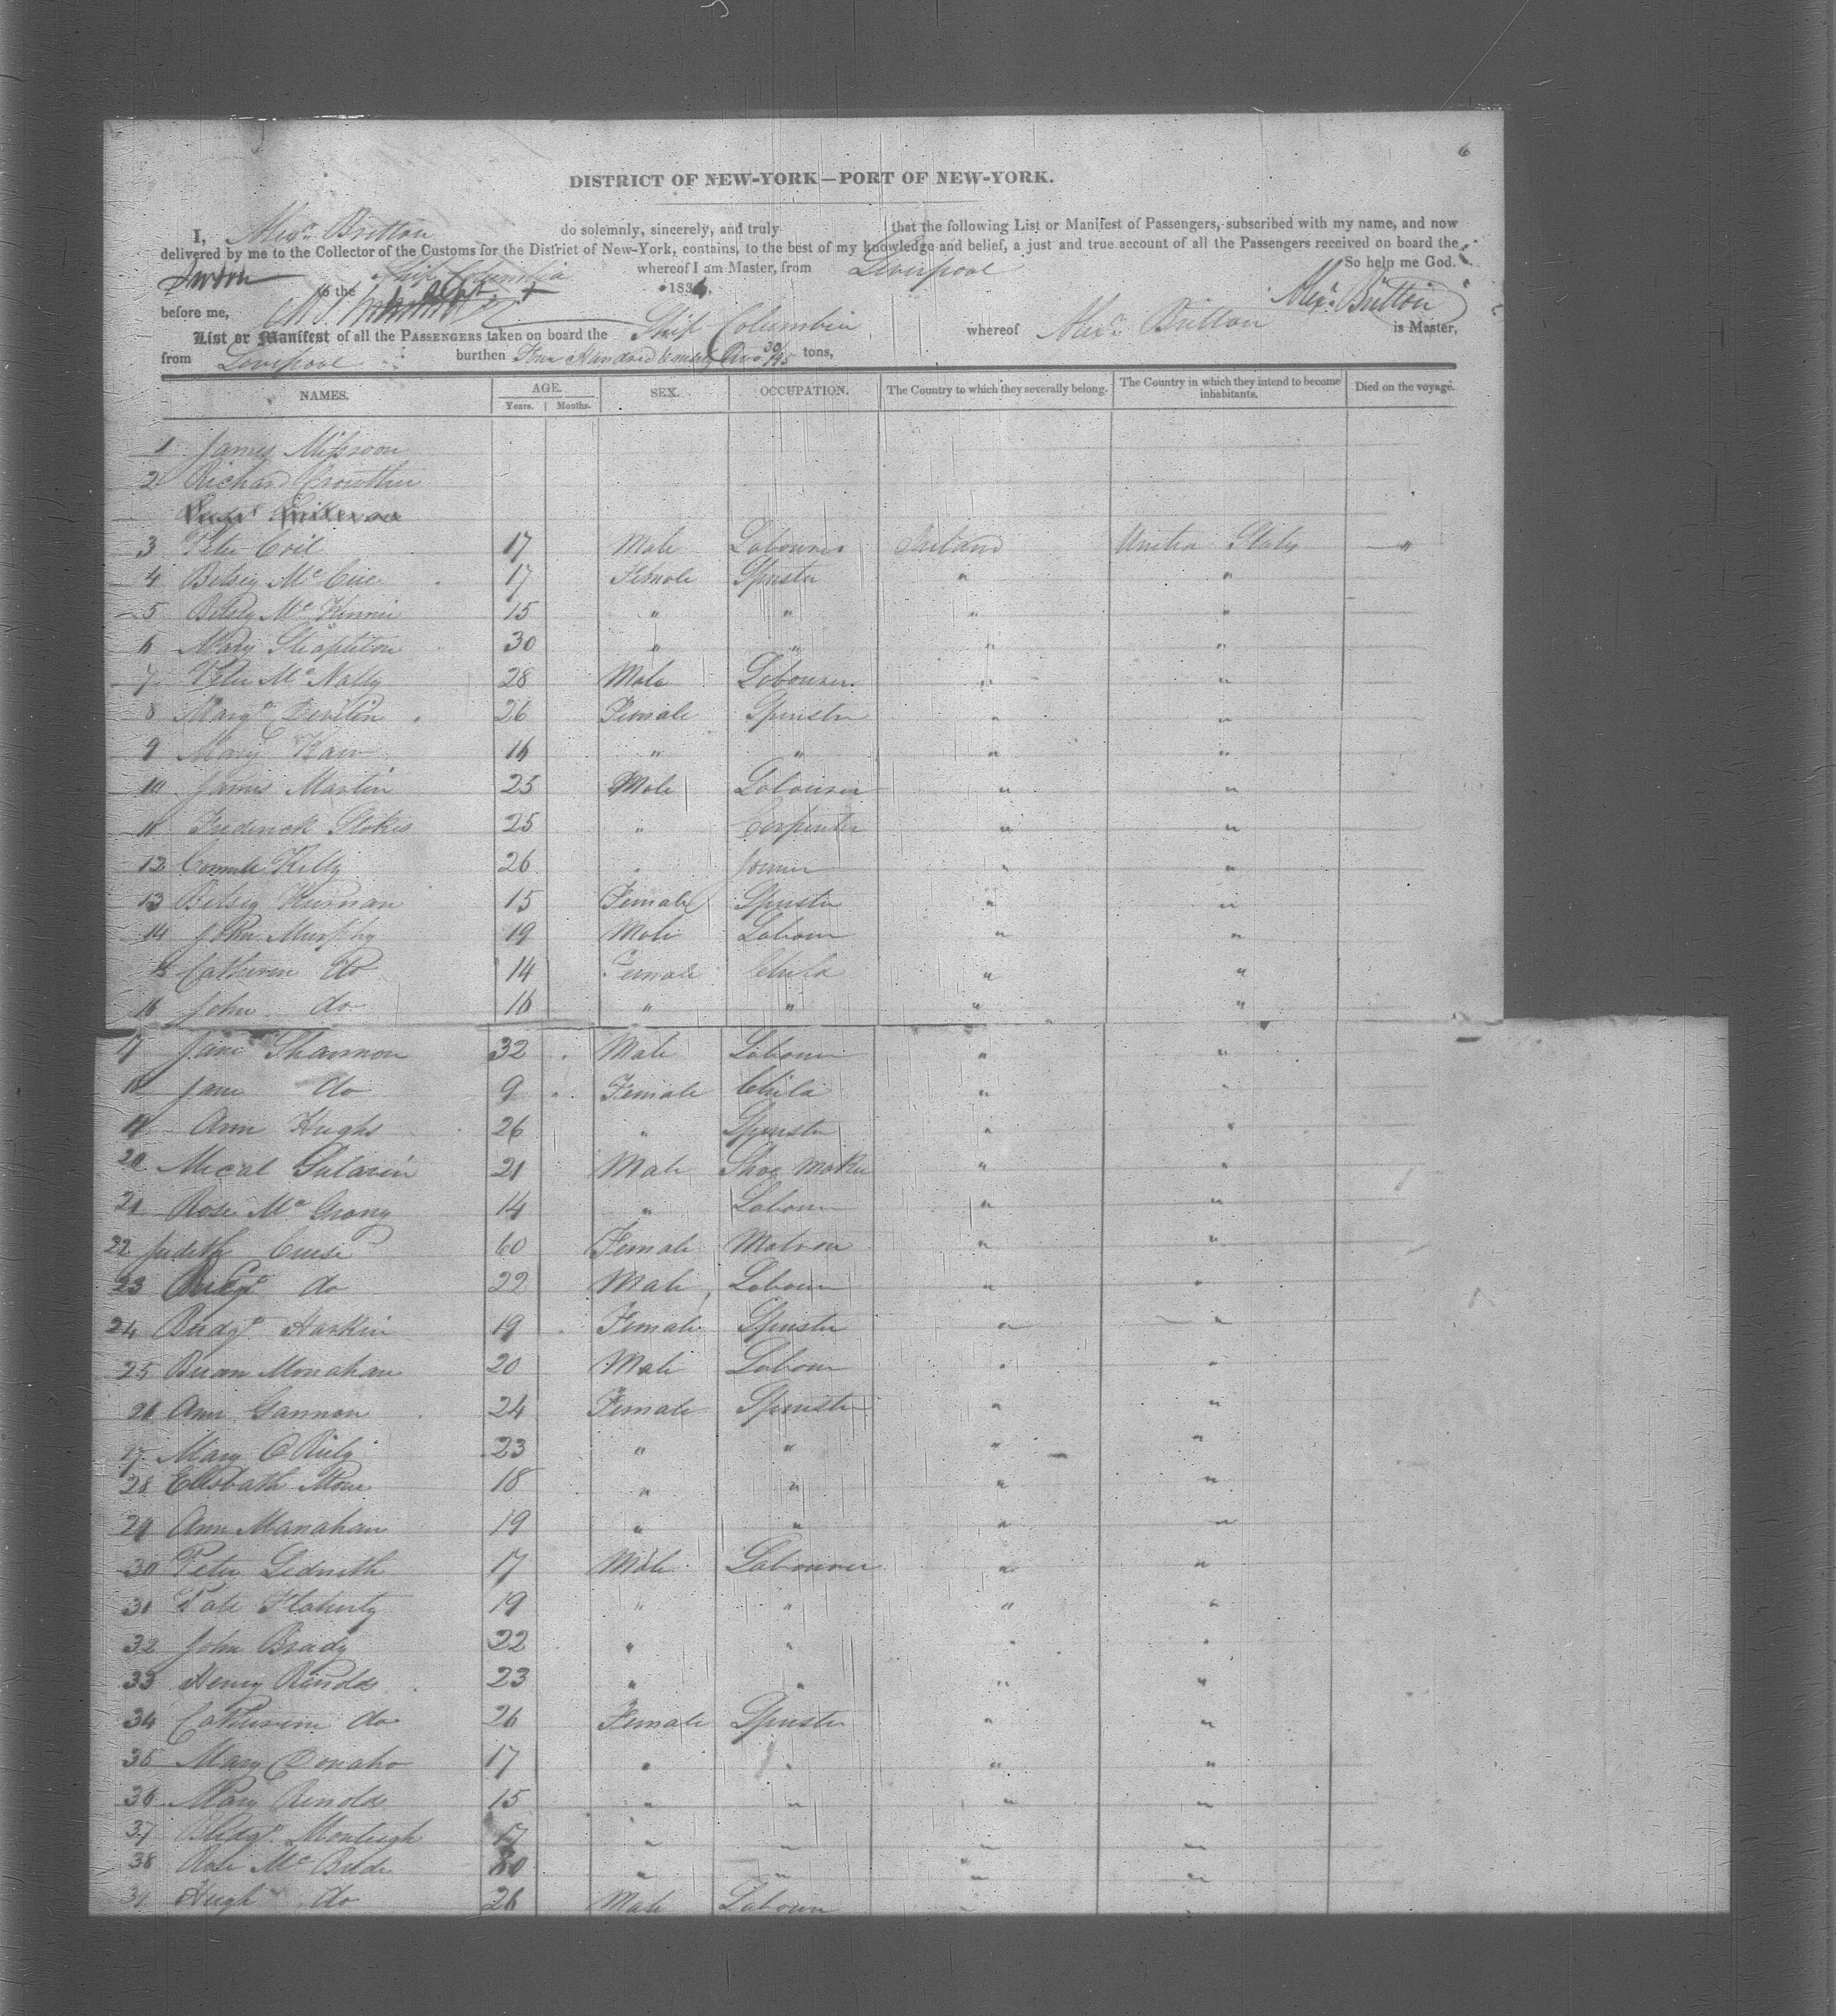 6
DISTRICT OF NEW-YORK—PORT OF NEW-YORK.
I, Alexr. Britton do solemnly, sincerely, and truly that the following List or Manifest of Passengers, subscribed with my name, and now
delivered by me to the Collector of the Customs for the District of New-York, contains, to the best of my knowledge and belief, a just and true account of all the Passengers received on board the
Ship Columbia whereof I am Master, from Liverpool So help me God.
Sworn to the 183
before me, Alexr. Britton
List or Manifest of all the PASSENGERS taken on board the Ship Columbia whereof Alexr. Britton is Master,
from Liverpool burthen Four Hundred 30/95 tons,
NAMES. AGE. SEX. OCCUPATION. The Country to which they severally belong. The Country in which they intend to become inhabitants. Died on the voyage.
Years. Months.
1 James Missroon
2 Richard Crowther
3 Peter Coil 17 Male Labourer Ireland United States — "
4 Betsey Mc Cue 17 Female Spinster " "
5 Betsey Mc Kinnie 15 " " " "
6 Mary Stapleton 30 " " " "
7 Peter Mc Nally 28 Male Labourer " "
8 Margt Devlin 26 Female Spinster " "
9 Mary Kain 16 " " " "
10 James Martin 25 Male Labourer " "
11 Frederick Stokes 25 " Carpenter " "
12 Kelly 26 " Joiner " "
13 Betsey Kiernan 15 Female Spinster " "
14 John Murphy 19 Male Labour " "
15 Catheren do 14 Female Child " "
16 John do 16 " " " "
17 Jane Shannon 32 Male Labour " "
18 Jane do 9 Female Child " "
19 Ann Hughs 26 " Spinster " "
20 Mical 21 Male Shoe Maker " "
21 Rose Mc 14 " Labour " "
22 Judith 60 Female Matron " "
23 do 22 Male Labour " "
24 Bridgt Harkin 19 Female Spinster " "
25 Brian Monahan 20 Male Labour " "
26 Ann Gannon 24 Female Spinster " "
27 Mary O Riely 23 " " " "
28 18 " " " "
29 Ann Manahan 19 " " " "
30 Peter Ledwith 17 Male Labourer " "
31 Flaherty 19 " " " "
32 John Brady 22 " " " "
33 Henry Rinolds 23 " " " "
34 Catherine do 26 Female Spinster " "
35 Mary Donaho 17 " " " "
36 Mary Rinolds 15 " " " "
37 Bridgt 17 " " " "
38 Rose Mc Bride " " " "
39 Hugh do 26 Male Labour " "